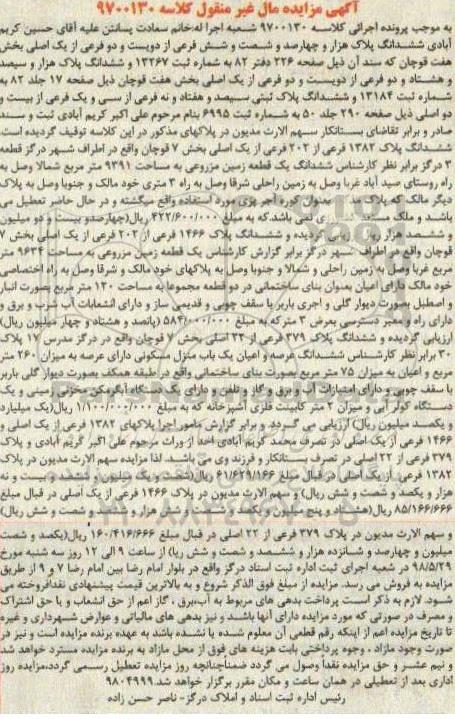 آگهی مزایده مال غیر منقول کلاسه ۹۷۰۰۱۳۰
به موجب پرونده اجرائی کلاسه ۹۷۰۰۱۳۰ شعبه اجرا له:خانم سعادت پسانتن علیه آقای حسین کریم
آبادی ششدانگ پلاک هزار و چهارصد و شصت و شش فرعی از دویست و دو فرعی از یک اصلی بخش
هفت قوچان که سند آن ذیل صفحه ۲۲۶ دفتر ۸۲ به شماره ثبت ۱۳۲۶۷ و ششدانگ پلاک هزار و سیصد
و هشتاد و دو فرعی از دویست و دو فرعی از یک اصلی بخش هفت قوچان ذیل صفحه ۱۷ جلد ۸۲ به
شماره ثبت ۱۳۱۸۴ و ششدانگ پلاک ثبتی سیصد و هفتاد و نه فرعی از سی و یک فرعی از بیست و
دو اصلی ذیل صفحه ۲۹۰ جلد ۵۰ به شماره ثبت ۶۹۹۵ بنام مرحوم علی اکبر کریم آبادی ثبت و سند
صادر و برابر تقاضای بستانکار سهم الارث مدیون در پلاکهای مذکور در این کلاسه توقیف گردیده است.
ششدانگ پلاک ۱۳۸۲ فرعی از ۲۰۲ فرعی از یک اصلی بخش ۷ قوچان واقع در اطراف شهر درگز قطعه
۳ درگز برابر نظر کارشناس ششدانگ یک قطعه زمین مزروعی به مساحت ۹۳۹۱ متر مربع شمالا وصل به
راه روستای صید آباد غربا وصل به زمین راحلی شرقا وصل به راه ۳ متری خود مالک و جنوبا وصل به پلاک
دیگر مالک که پلاک بعنوان کوره آجر پزی مورد استفاده واقع میگشته و در حال حاضر تعطیل می
باشد و ملک نمی باشد.که به مبلغ ۴۲۲/۶۰۰/۰۰۰ ریال(چهارصدو بیست و دو میلیون
و ششصد هزار گردیده و ششدانگ پلاک ۱۴۶۶ فرعی از ۲۰۲ فرعی از یک اصلی بخش ۷
قوچان واقع در اطراف شهر درگز برابر گزارش کارشناس یک قطعه زمین مزروعی به مساحت ۹۶۳۴ متر
مربع غربا وصل به زمین راحلی و شمالا و جنوبا وصل به پلاکهای خود مالک و شرقا وصل به راه اختصاصی
خود مالک دارای اعیان بعنوان بنای ساختمانی در دو قطعه مجموعا به مساحت ۱۲۰ متر مربع بصورت انبار
و اصطبل بصورت دیوار گلی و اجری باربر با سقف چوبی و قدیمی ساز و دارای انشعابات آب شرب و برق و
دارای راه و معبر دسترسی بعرض ۳ متر که به مبلغ ۵۸۴/۰۰۰/۰۰۰ (پانصد و هشتاد و چهار میلیون ریال)
ارزیابی گردیده و ششدانگ پلاک ۳۷۹ فرعی از ۲۲ اصلی بخش ۷ قوچان واقع در درگز مدرس ۱۷ پلاک
۳۰ برابر نظر کارشناس ششدانگ عرصه و اعیان یک باب منزل مسکونی دارای عرصه به میزان ۲۶۰ متر
مربع و اعیان به میزان ۷۵ متر مربع بصورت بنای ساختمانی واقع در طبقه همکف بصورت دیوار گلی باربر
با سقف چوبی و دارای امتیازات آب و برق و گاز و تلفن و دارای یک دستگاه آبگرمکن مخزنی زمینی و یک
دستگاه کولر آبی و میزان ۲ متر کابینت فلزی آشپزخانه که به مبلغ ۱/۱۰۰/۰۰۰/۰۰۰ ریال(یک میلیارد
و یکصد میلیون ریال) ارزیابی می گردد. و برابر گزارش مامور اجرا پلاکهای ۱۳۸۲ فرعی از یک اصلی و
۱۴۶۶ فرعی از یک اصلی در تصرف محمد کریم آبادی احد از وراث مرحوم علی اکبر کریم آبادی و پلاک
۳۷۹ فرعی از ۲۲ اصلی در تصرف بستانکار و فرزند وی می باشد. لذا مزایده سهم الارث مدیون در پلاک
۱۳۸۲ فرعی از یک اصلی در قبال مبلغ ۶۱/۶۲۹/۱۶۶ ریال(شصت و یک میلیون و ششصد و بیست و نه
هزار و یکصد و شصت و شش ریال) و سهم الارث مدیون در پلاک ۱۴۶۶ فرعی از یک اصلی در قبال مبلغ
۸۵/۱۶۶/۶۶۶ ریال(هشتاد و پنج میلیون و یکصد و شصت و شش هزار و ششصد و شصت و شش ریال)
و سهم الارث مدیون در پلاک ۳۷۹ فرعی از ۲۲ اصلی در قبال مبلغ ۱۶۰/۴۱۶/۶۶۶ ریال(یکصد و شصت
میلیون و چهارصد و شانزده هزار و ششصد و شصت و شش ریا) از ساعت ۹ الی ۱۲ روز سه شنبه مورخ
۹۸/۵/۲۹ در شعبه اجرای ثبت اداره ثبت اسناد درگز واقع در بلوار امام رضا بین امام رضا ۷ و ۹ از طریق
مزایده به فروش می رسد. مزایده از مبلغ فوق الذکر شروع و به بالاترین قیمت پیشنهادی نقدا فروخته می
شود. لازم به ذکر است پرداخت بدهی های مربوط به آب،برق ، گاز اعم از حق انشعاب و یا حق اشتراک
و مصرف در صورتی که مورد مزایده دارای آنها باشد و نیز بدهی های مالیاتی و عوارض شهرداری و غیره
تا تاریخ مزایده اعم از اینکه رقم قطعی آن معلوم شده یا نشده باشد به عهده برنده مزایده است و نیز در
صورت وجود مازاد ، وجوه پرداختی بابت هزینه های فوق از محل مازاد به برنده مزایده مسترد خواهد شد
و نیم عشر و حق مزایده نقدا وصول می گردد ضمناچنانچه روز مزایده تعطیل رسمی گردد،مزایده روز
اداری بعد از تعطیلی در همان ساعت و مکان مقرر برگزار خواهد شد.۹۸۰۴۹۹۹
رئیس اداره ثبت اسناد و املاک درگز- ناصر حسن زاده